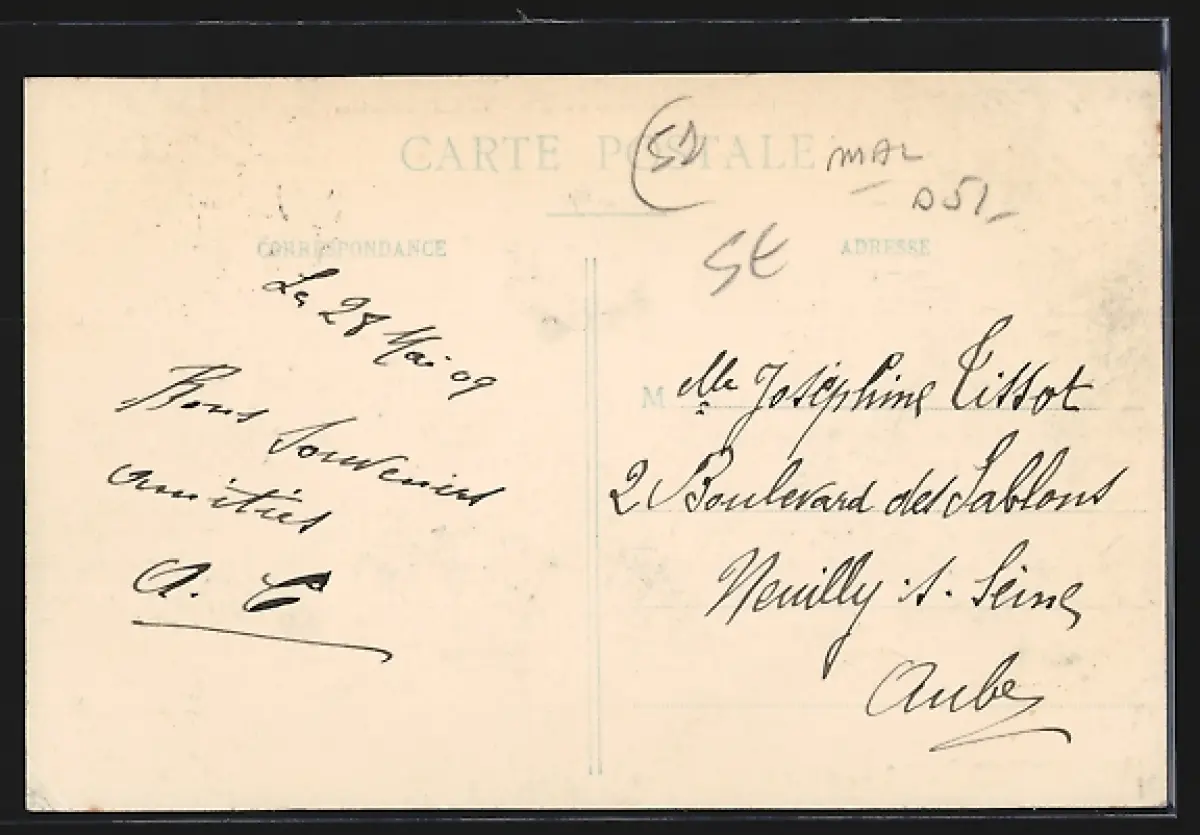 CARTE POSTALE
(51
MAL
D51
St
CORRESPONDANCE
ADRESSE
Le 28 Mai 09
Bons Souvenirs
amitiés
A. C
M elle Joséphine Tissot
2 Boulevard des Sablons
Neuilly s. Seine
Aube